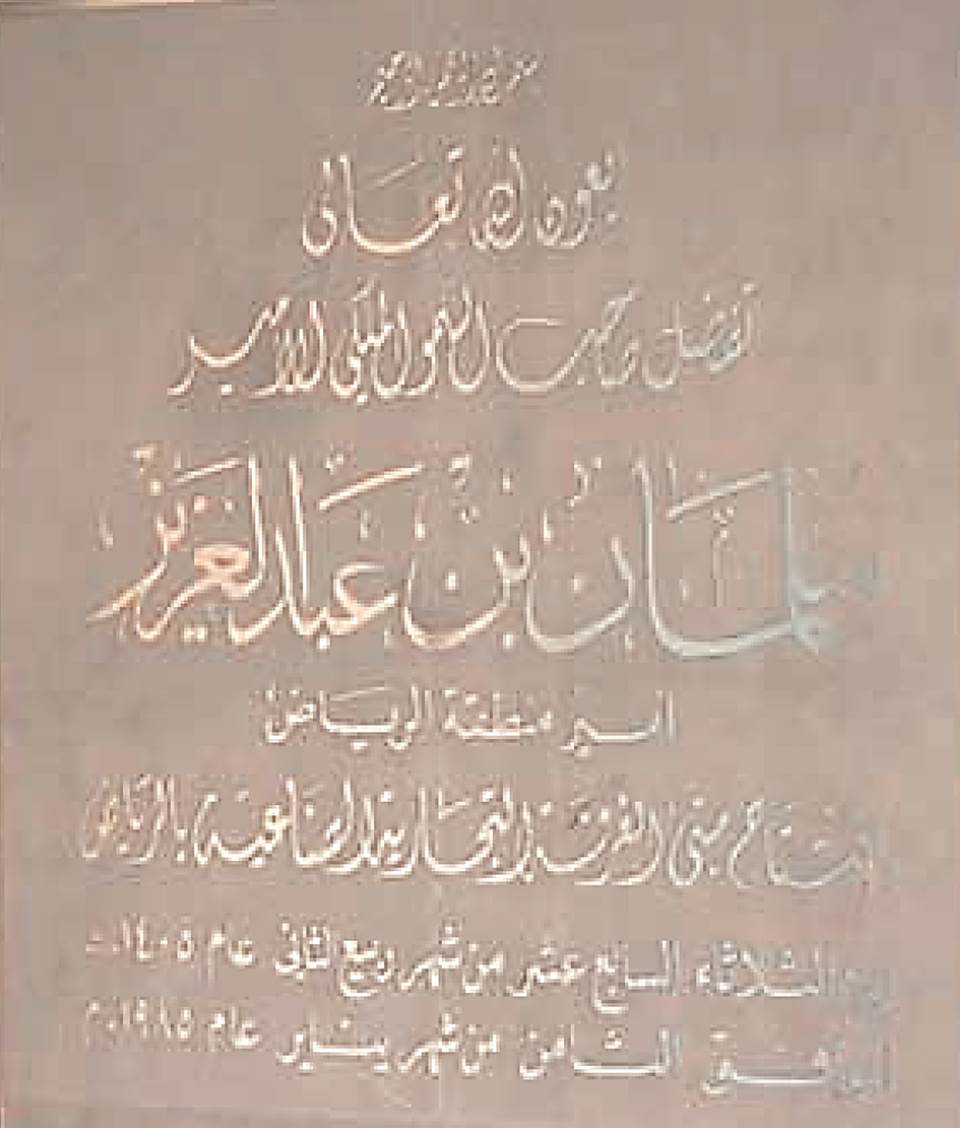 بسم الله الرحمن الرحيم
بعون الله تعالى
تفضل صاحب السمو الملكي الأمير
سلمان بن عبد العزيز
امير منطقة الرياض
بافتتاح مبنى الغرفة التجارية الصناعية بالرياض
يوم الثلاثاء السابع عشر من شهر ربيع الثاني عام ١٤٠٥هـ
الموافق الثامن من شهر يناير عام ١٩٨٥م